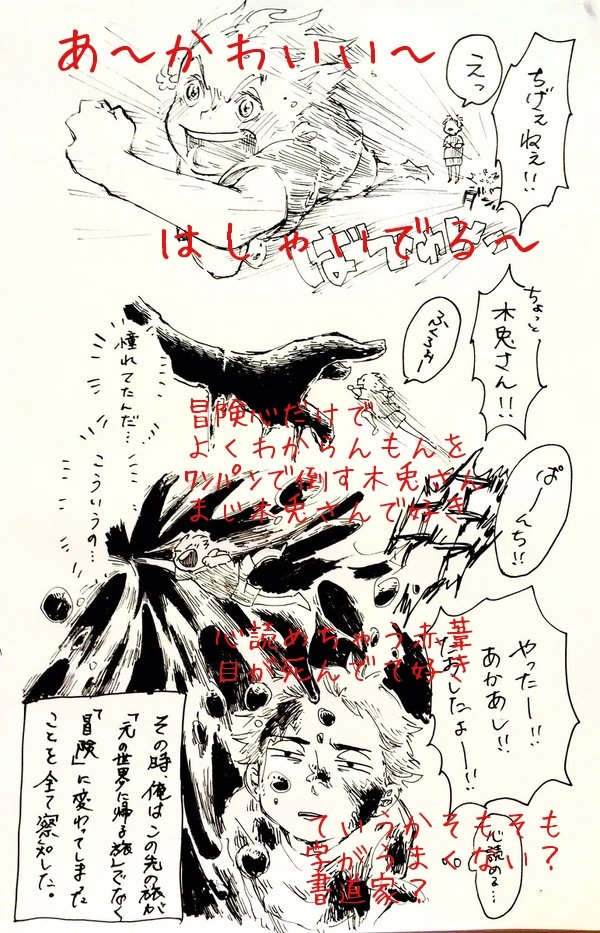 あ～かわいい～
えっ
ちげぇねぇ!!
はしゃいでる～
ちょっと
木兎さん!!
ふくろぉー
憧れてたんだ…
こういうの…
冒険心だけで
よくわからんもんを
ワンパンで倒す木兎さん
まじ木兎さんで好き
ぱーんち!!
心読めちゃう赤葦
目が死んでて好き
やったー!!
あかあし!!
たおしたよー!!
その時、俺はこの先の旅が
「元の世界に帰る旅」でなく
「冒険」に変わってしまった
ことを全て察知した。
ていうかそもそも
字がうまくない?
書道家?
心読める…